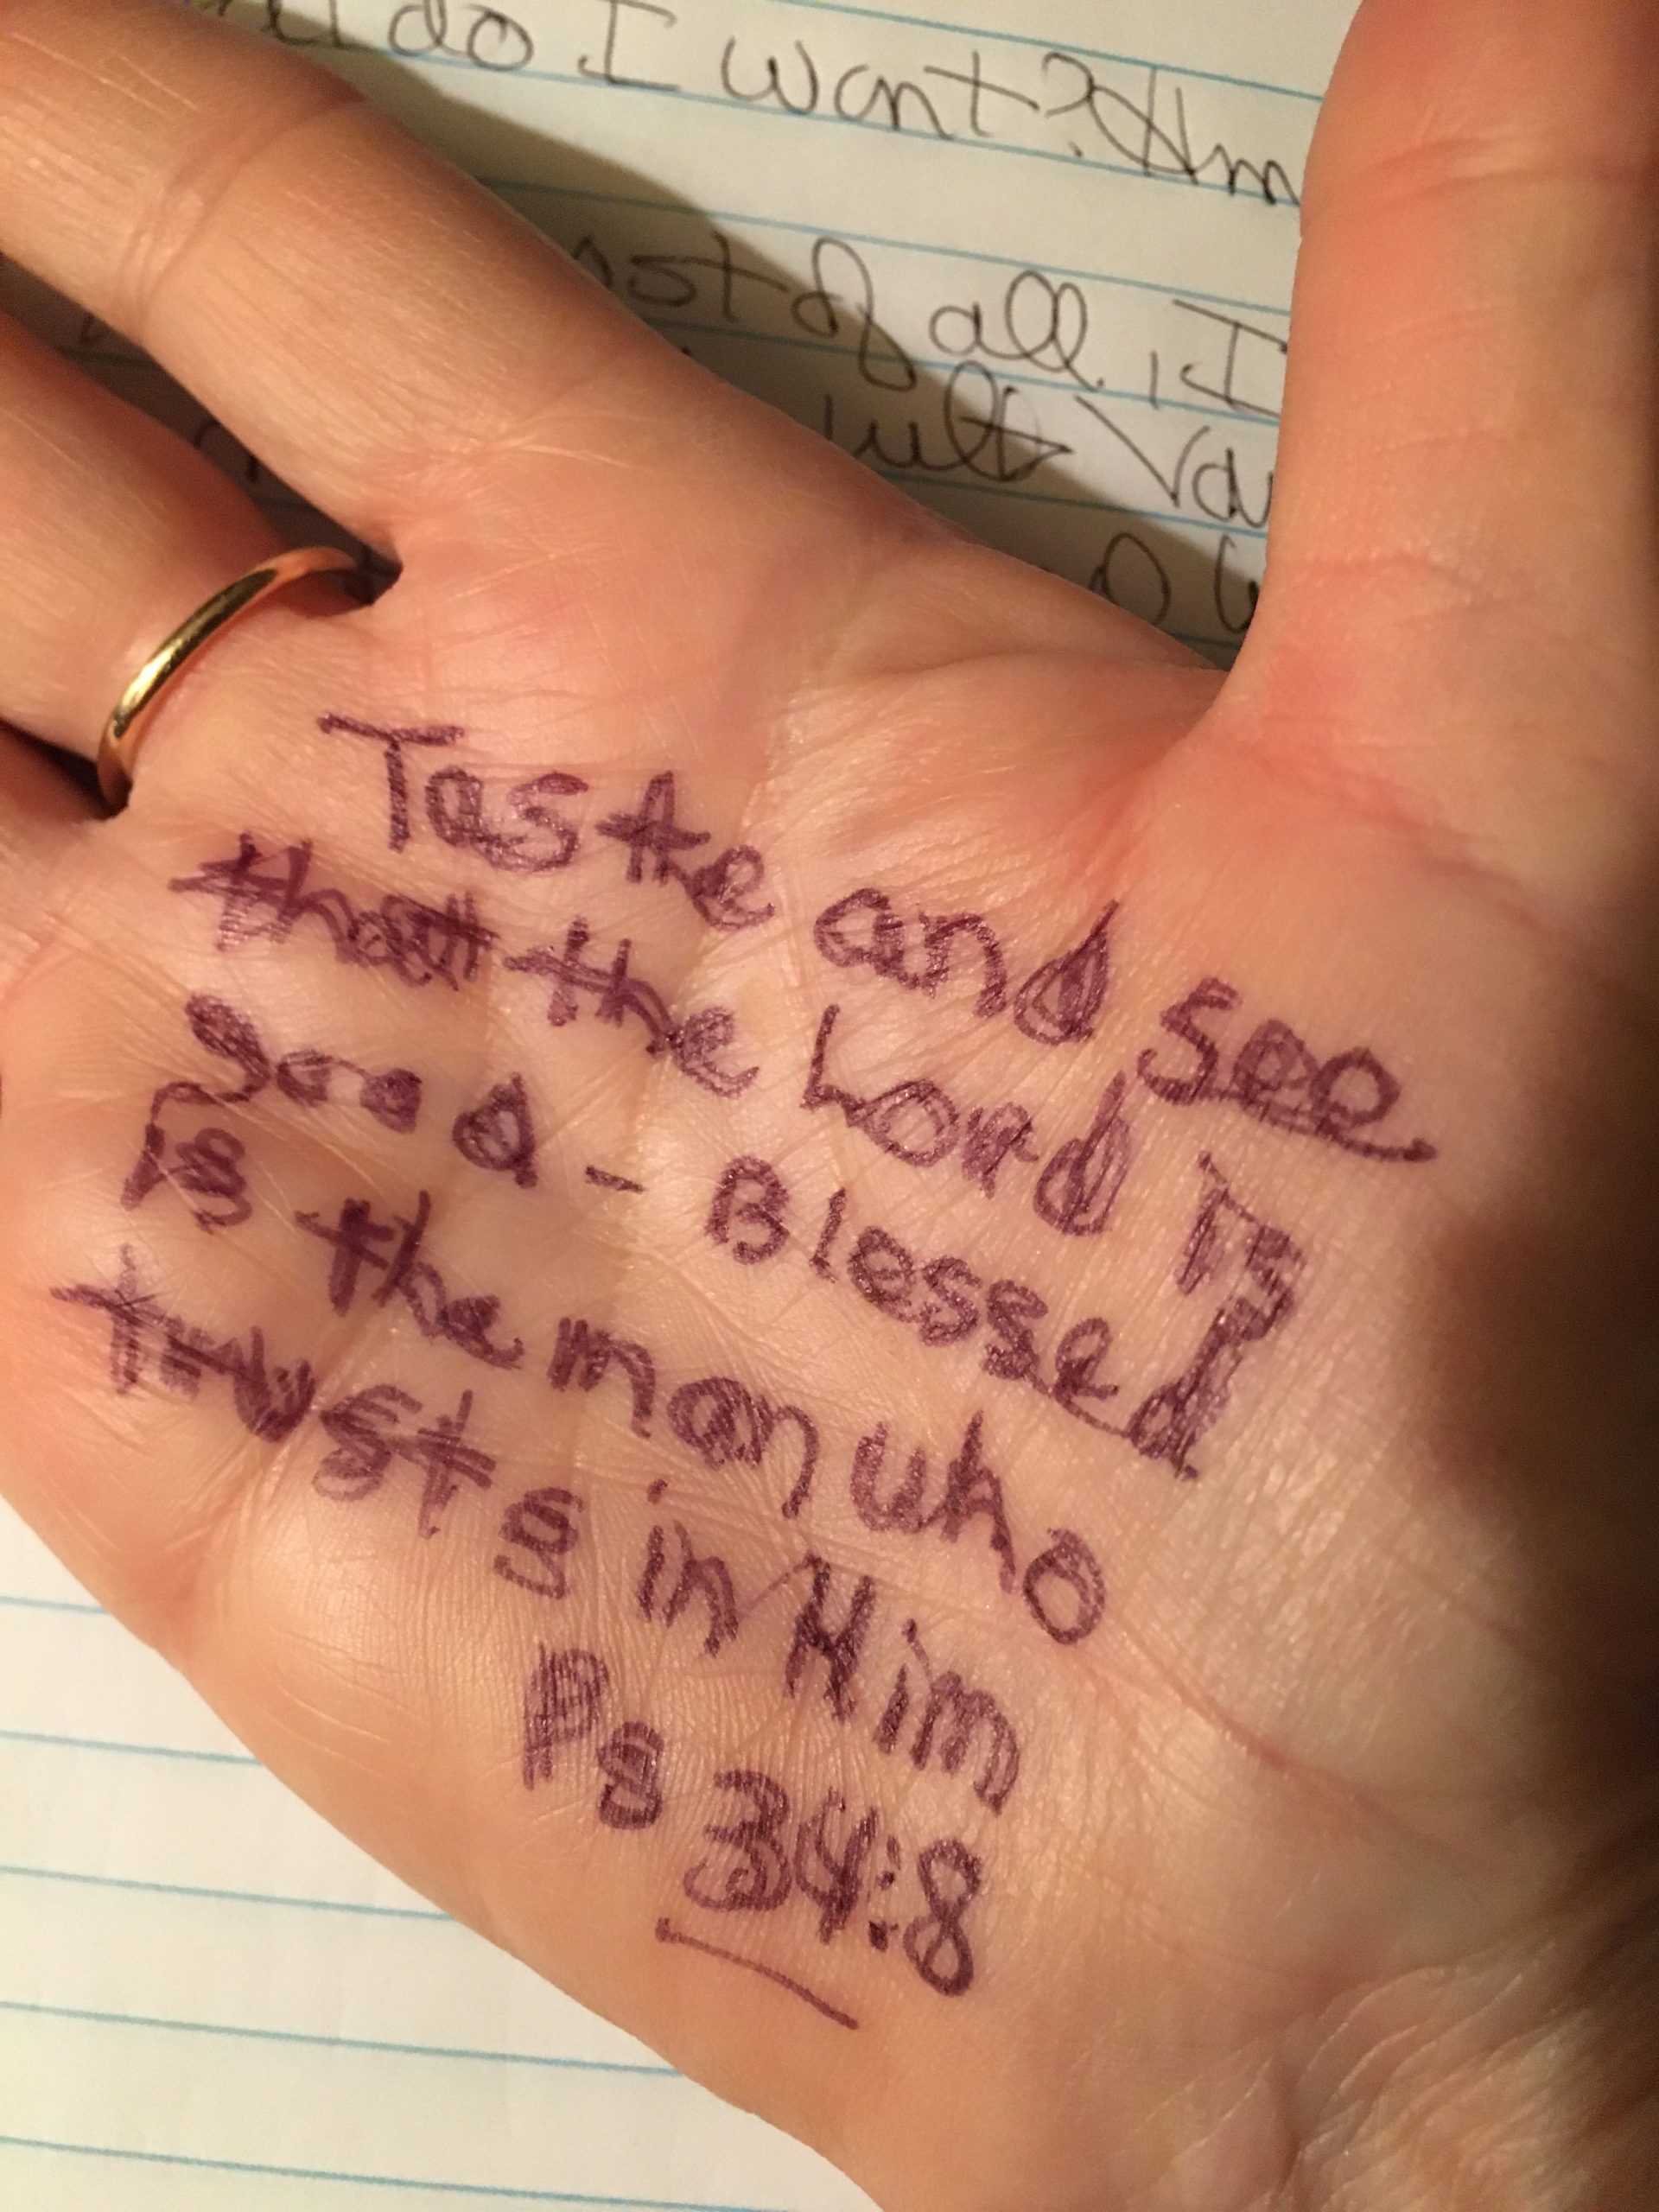 do I want? Hm
of all, I
Taste and see
that the Lord is
good - Blessed
is the man who
trusts in Him
Ps 34:8